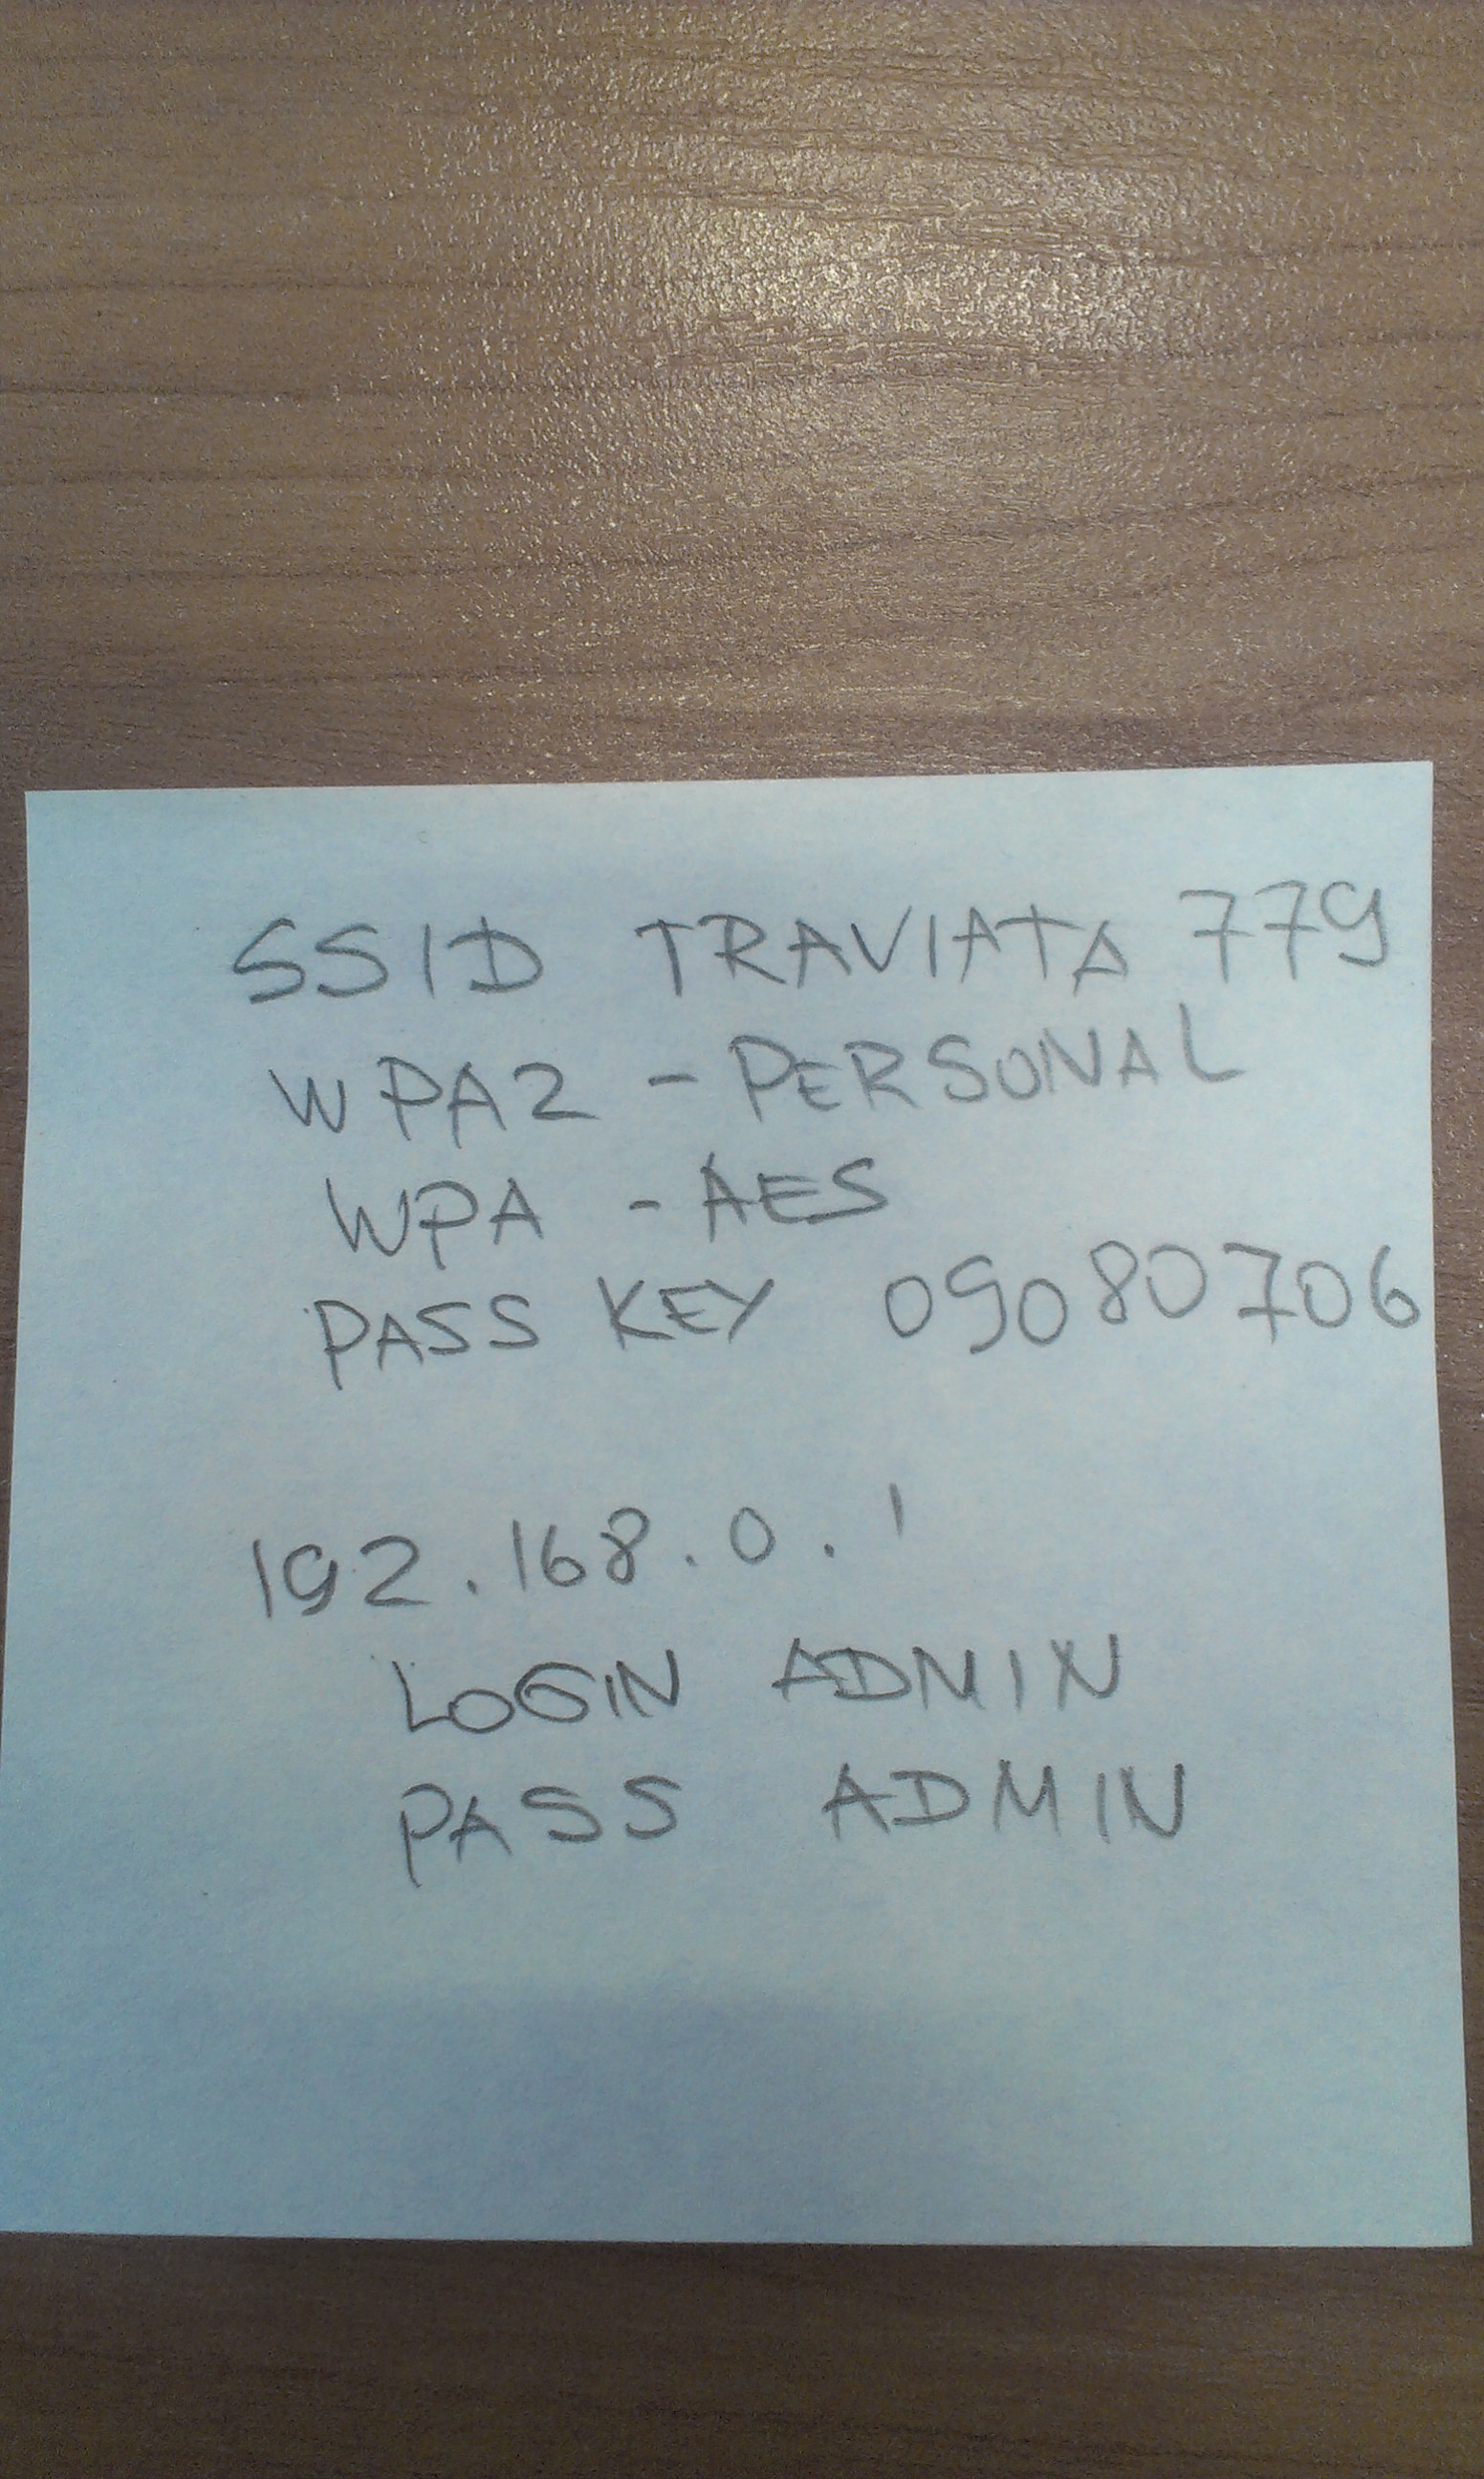 SSID TRAVIATA 779
WPA2 - PERSONAL
WPA - AES
PASS KEY 09080706
192.168.0.1
LOGIN ADMIN
PASS ADMIN